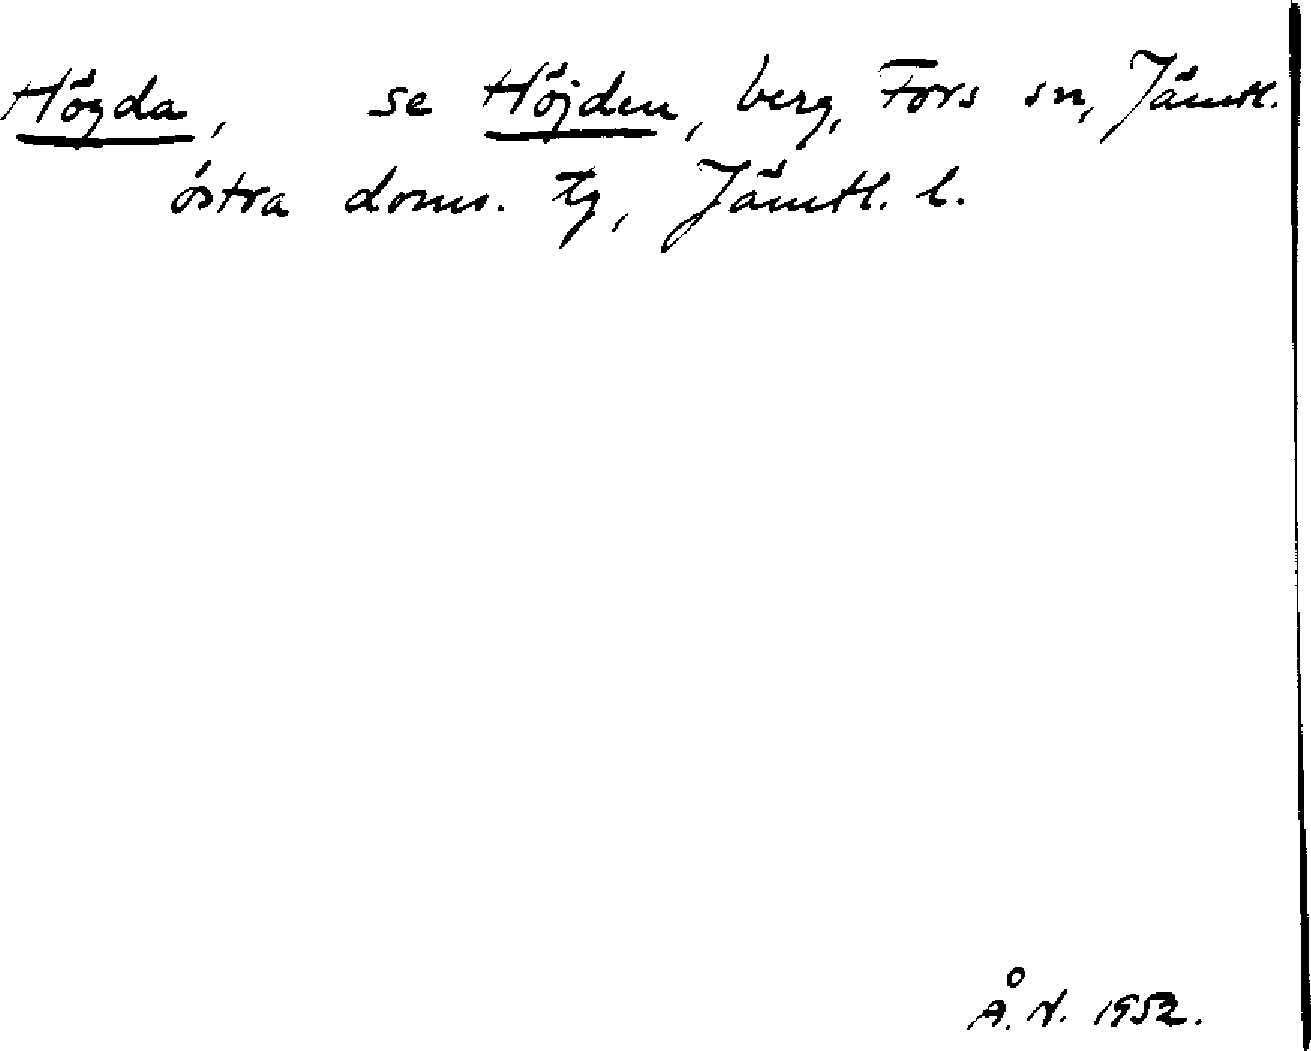 Högda, se Höjden, berg, Fors sn, Jämtl.
östra doms. tg, Jämtl. l.
Å. N. 1952.